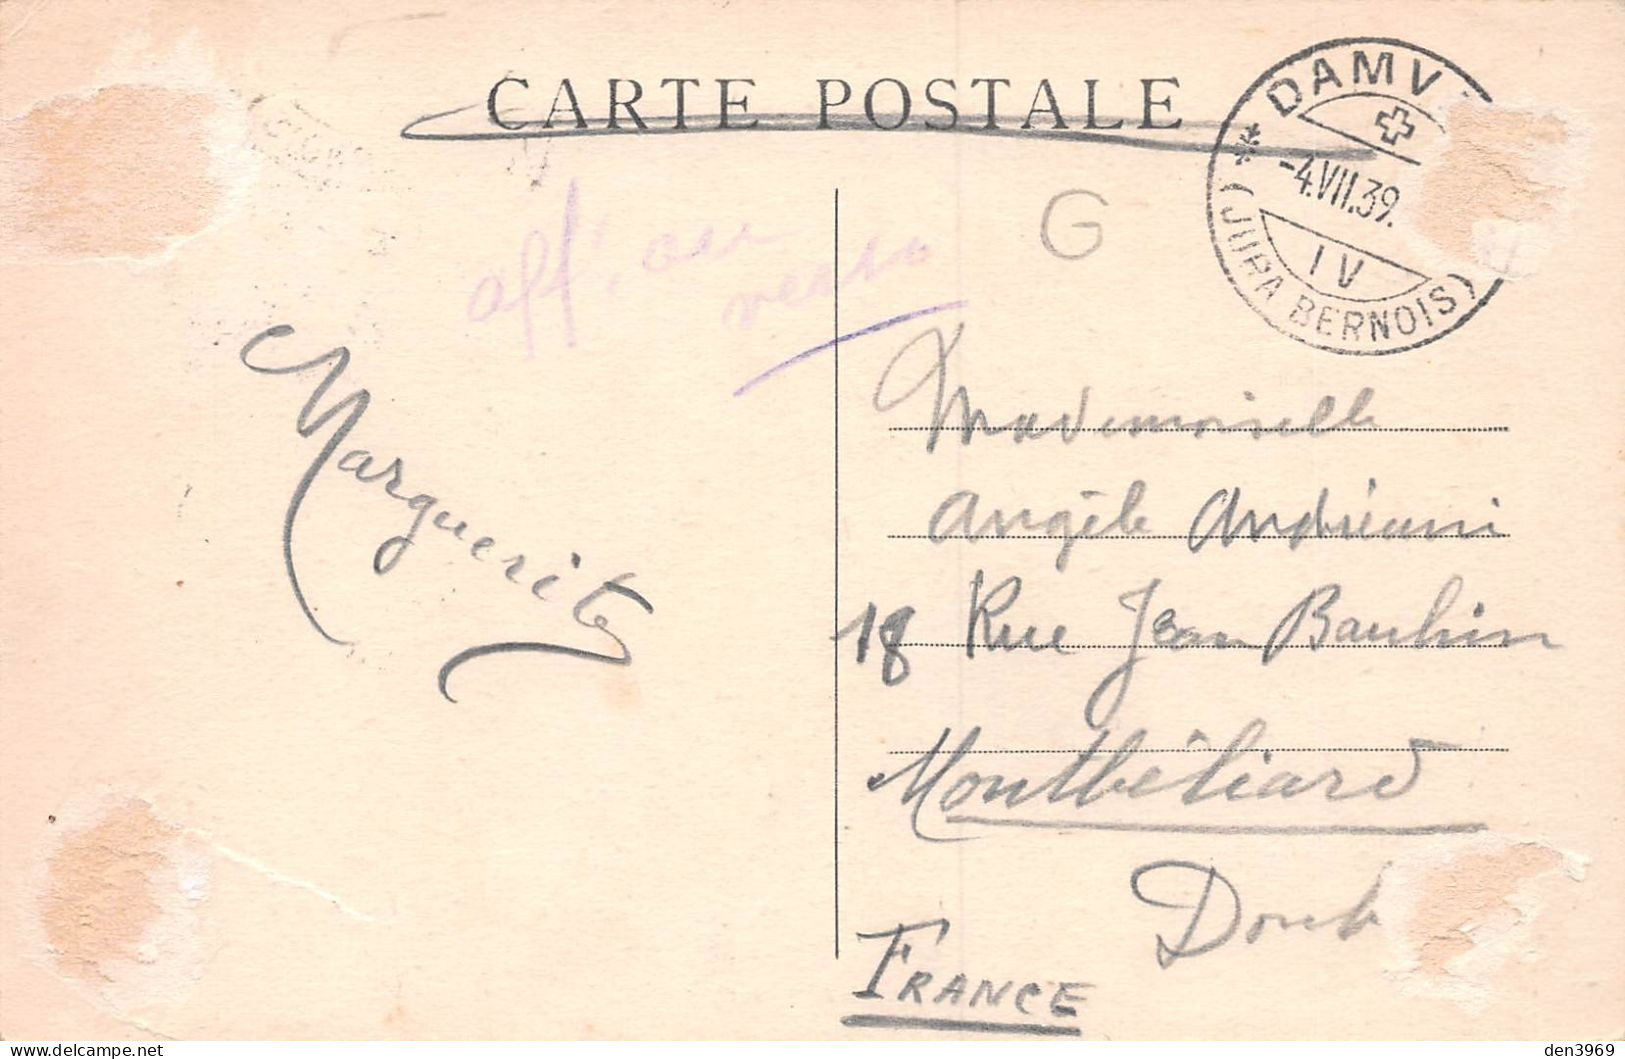 CARTE POSTALE
DAMV
-4.VII.39.
IV
(JURA BERNOIS)
G
aff. au
verso
Marguerite
Mademoiselle
Angèle Andréani
18 Rue Jean Bauhin
Montbéliard
Doub
FRANCE
den3969